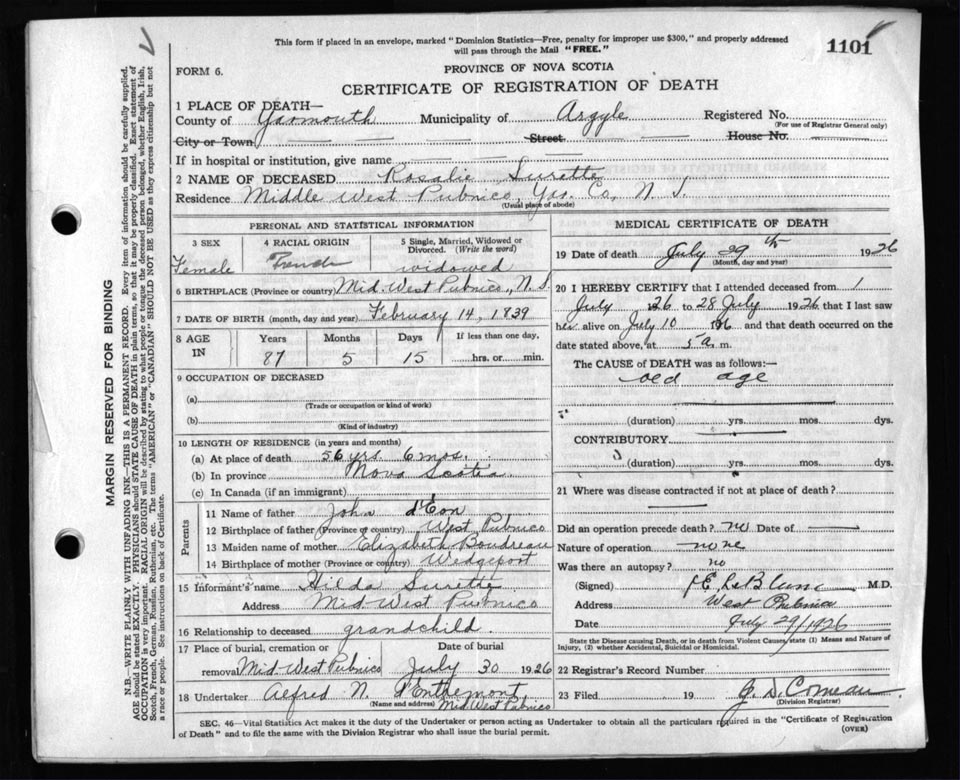 This form if placed in an envelope, marked "Dominion Statistics—Free, penalty for improper use $300," and properly addressed
will pass through the Mail "FREE."
1101
FORM 6.
PROVINCE OF NOVA SCOTIA
CERTIFICATE OF REGISTRATION OF DEATH
1 PLACE OF DEATH—
County of Yarmouth Municipality of Argyle Registered No.
(For use of Registrar General only)
City or Town Street House No.
If in hospital or institution, give name
2 NAME OF DECEASED Rosalie Surette
Residence Middle West Pubnico, Yar. Co, N. S.
(Usual place of abode)
PERSONAL AND STATISTICAL INFORMATION
3 SEX
Female
4 RACIAL ORIGIN
French
5 Single, Married, Widowed or
Divorced. (Write the word)
widowed
6 BIRTHPLACE (Province or country) Mid. West Pubnico, N. S.
7 DATE OF BIRTH (month, day and year) February 14, 1839
8 AGE
IN
Years
87
Months
5
Days
15
If less than one day,
hrs. or min.
9 OCCUPATION OF DECEASED
(a)
(Trade or occupation or kind of work)
(b)
(Kind of industry)
10 LENGTH OF RESIDENCE (in years and months)
(a) At place of death 56 yrs. 6 mos.
(b) In province Nova Scotia
(c) In Canada (if an immigrant)
Parents
11 Name of father John d'Eon
12 Birthplace of father (Province or country) West Pubnico
13 Maiden name of mother Elizabeth Boudreau
14 Birthplace of mother (Province or country) Wedgeport
15 Informant's name Hilda Surette
Address Mid West Pubnico
16 Relationship to deceased grandchild.
17 Place of burial, cremation or Date of burial
removal Mid-West Pubnico July 30 1926
18 Undertaker Alfred N. d'Entremont,
(Name and address) Mid West Pubnico
MEDICAL CERTIFICATE OF DEATH
19 Date of death July 29 1926
(Month, day and year)
20 I HEREBY CERTIFY that I attended deceased from 1
July 26 to 28 July 1926 that I last saw
her alive on July 10 and that death occurred on
date stated above, at 5 a. m.
The CAUSE of DEATH was as follows:—
old age
(duration) yrs. mos. dys.
CONTRIBUTORY
(duration) yrs. mos. dys.
21 Where was disease contracted if not at place of death?
Did an operation precede death? no Date of
Nature of operation none
Was there an autopsy? no
(Signed) LeBlanc M.D.
Address West Pubnico
Date July 29/1926
State the Disease causing Death, or in death from Violent Causes, state (1) Means and Nature of
Injury, (2) whether Accidental, Suicidal or Homicidal.
22 Registrar's Record Number
23 Filed 19 J. D. Comeau
(Division Registrar)
SEC. 46—Vital Statistics Act makes it the duty of the Undertaker or person acting as Undertaker to obtain all the particulars required in the "Certificate of Registration
of Death" and to file the same with the Division Registrar who shall issue the burial permit.
(OVER)
MARGIN RESERVED FOR BINDING
N.B.—WRITE PLAINLY WITH UNFADING INK—THIS IS A PERMANENT RECORD. Every item of information should be carefully supplied.
AGE should be stated EXACTLY. PHYSICIANS should STATE CAUSE OF DEATH in plain terms, so that it may be properly classified. Exact statement of
OCCUPATION is very important. RACIAL ORIGIN will be described by stating to what people or tongue the deceased person belonged, whether English, Irish,
Scotch, French, German, Russian, Ruthenian, etc. The terms "AMERICAN" or "CANADIAN" SHOULD NOT BE USED as they express citizenship but not
a race or people. See instructions on back of Certificate.